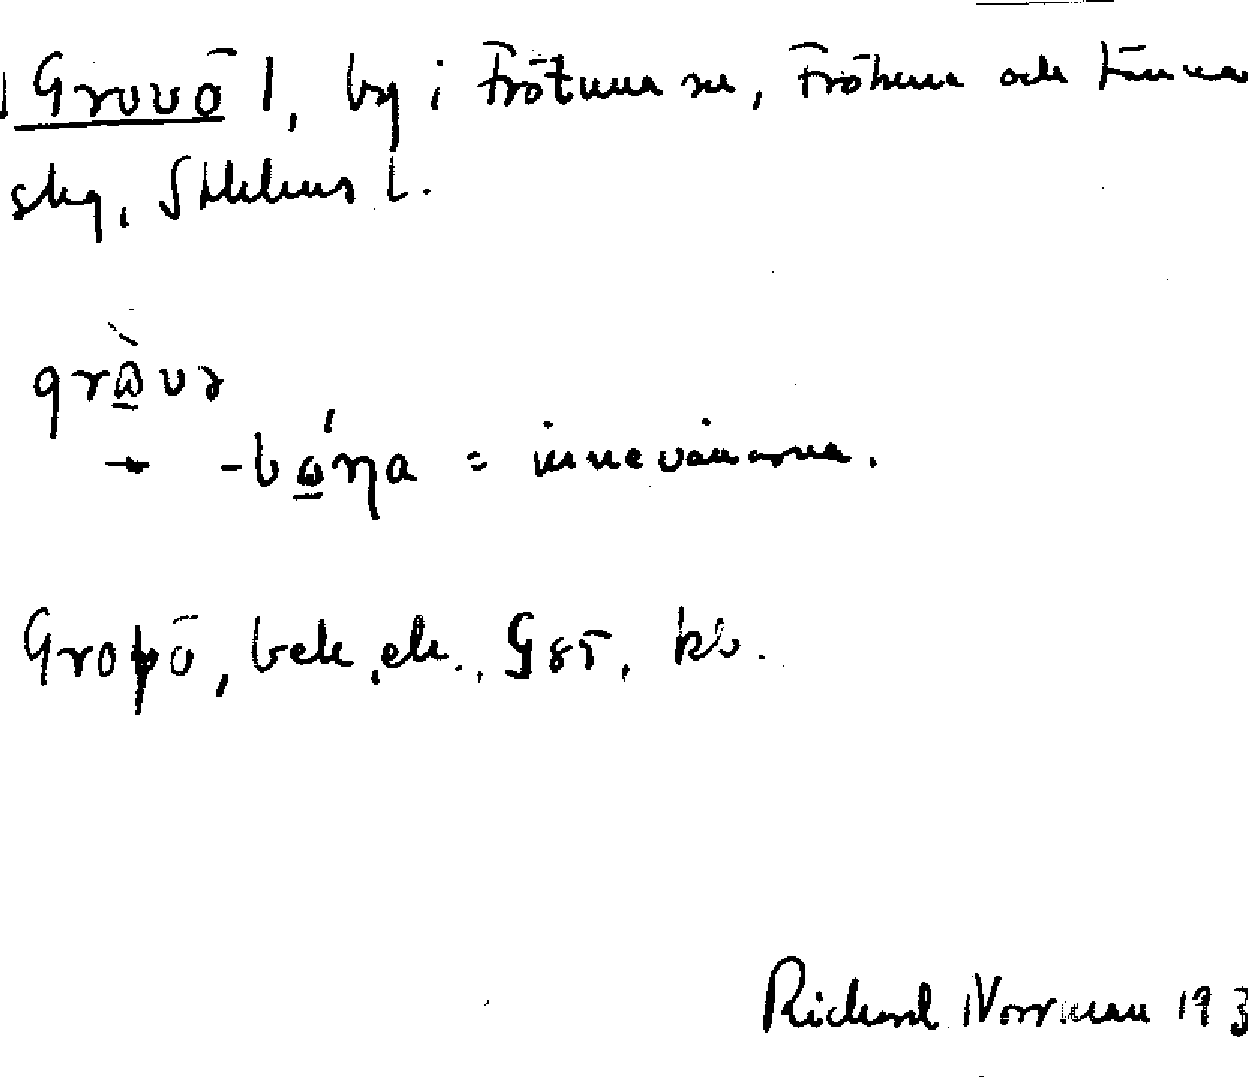 Gruvö 1, by i Frötuna sn, Frötuna och Länna
skg, Sthlms l.
grɷ̀və
→ -bɷ́ŋa = innevånarna.
Gropö, bek. ek., G 85, kb.
Richard Norrman 193